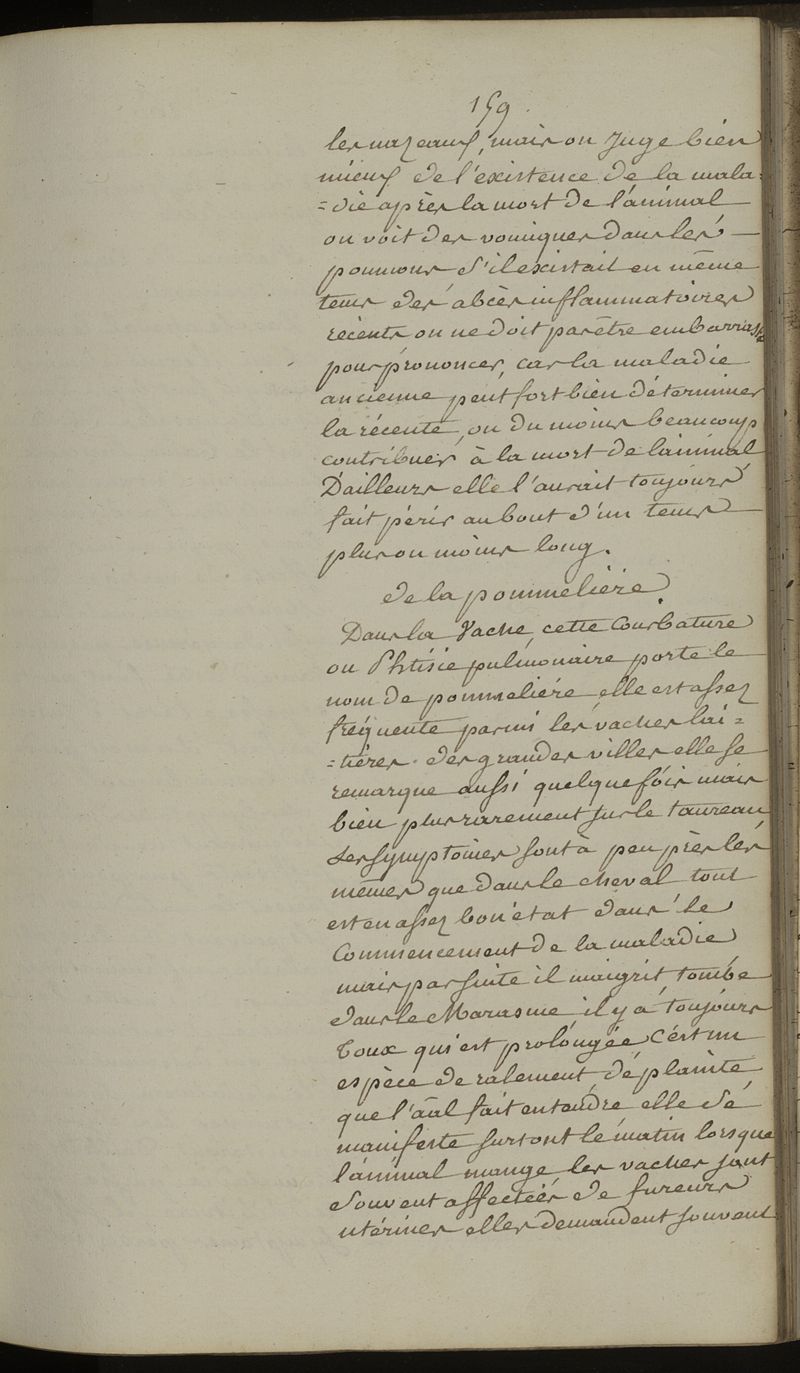 159.
les nazeaux, mais on Juge bien
mieux de l'existence de la mala=
=die après la mort de l'animal
on voit des vomiques dans les
poumons s'il existait en même
tems des abcès inflammatoires
récents on ne doit pas être embarrassé
pour prononcer, car la maladie
ancienne peut fort bien déterminer
la récente, ou du moins beaucoup
contribuer à la mort de l'animal
D'ailleurs elle l'aurait toujours
fait périr au bout d'un tems
plus ou moins long.
de la pommelière
Dans la Vache, cette Courbature
ou Phtisie pulmonaire porte le
nom de pommelière elle est assez
fréquente parmi les vaches lai=
=tières des grandes villes elle se
remarque aussi quelque fois mais
bien plus rarement sur le taureau
Les symptômes sont à peu près les
mêmes que dans le cheval tout
est en assez bon état dans le
Commencement de la maladie
mais par suite il maigrit, tombe
dans le Marasme, il y a toujours
Toux qui est prolongée C'est un
espèce de ralement, de plainte
que l'aâl fait entendre elle se
manifeste surtout le matin lorsque
l'animal mange, les vaches sont
souvent affectées de fureurs
utérines elles demandent souvent